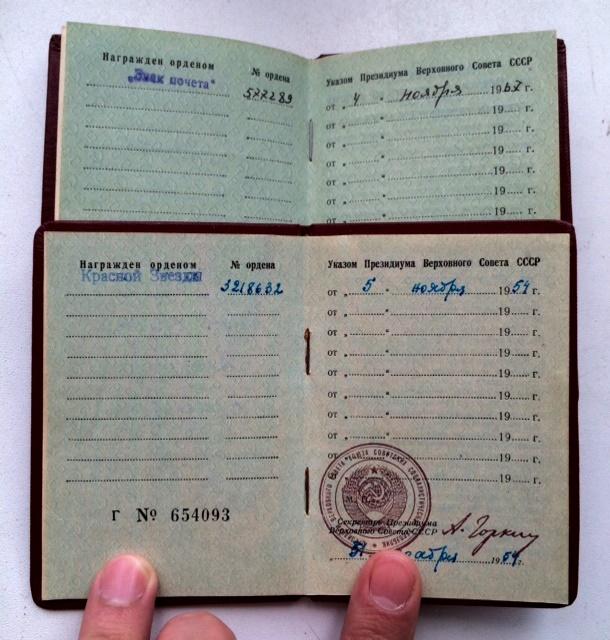 Награжден орденом № ордена Указом Президиума Верховного Совета СССР
„Знак почета“ 577289 от „ 4 “ ноября 1967 г.
от „ “ 19 г.
от „ “ 19 г.
от „ “ 19 г.
от „ “ 19 г.
от „ “ 19 г.
от „ “ 19 г.
Награжден орденом № ордена Указом Президиума Верховного Совета СССР
Красной Звезды 3218632 от „ 5 “ ноября 1954 г.
от „ “ 19 г.
от „ “ 19 г.
от „ “ 19 г.
от „ “ 19 г.
от „ “ 19 г.
от „ “ 19 г.
от „ “ 19 г.
от „ “ 19 г.
от „ “ 19 г.
Г № 654093
Секретарь Президиума
Верховного Совета СССР А. Горкин
1954 г.